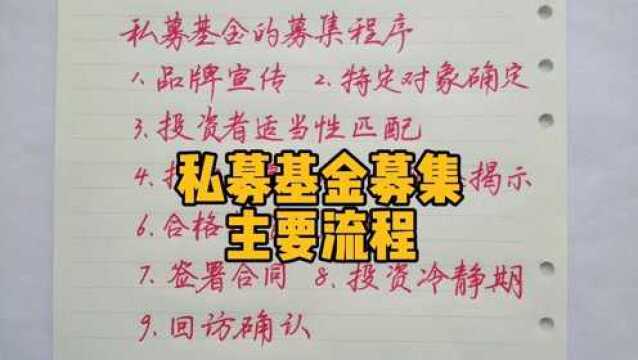 私募基金的募集程序
1、品牌宣传 2、特定对象确定
3、投资者适当性匹配
4、 揭示
私募基金募集
6、合格
主要流程
7、签署合同 8、投资冷静期
9、回访确认